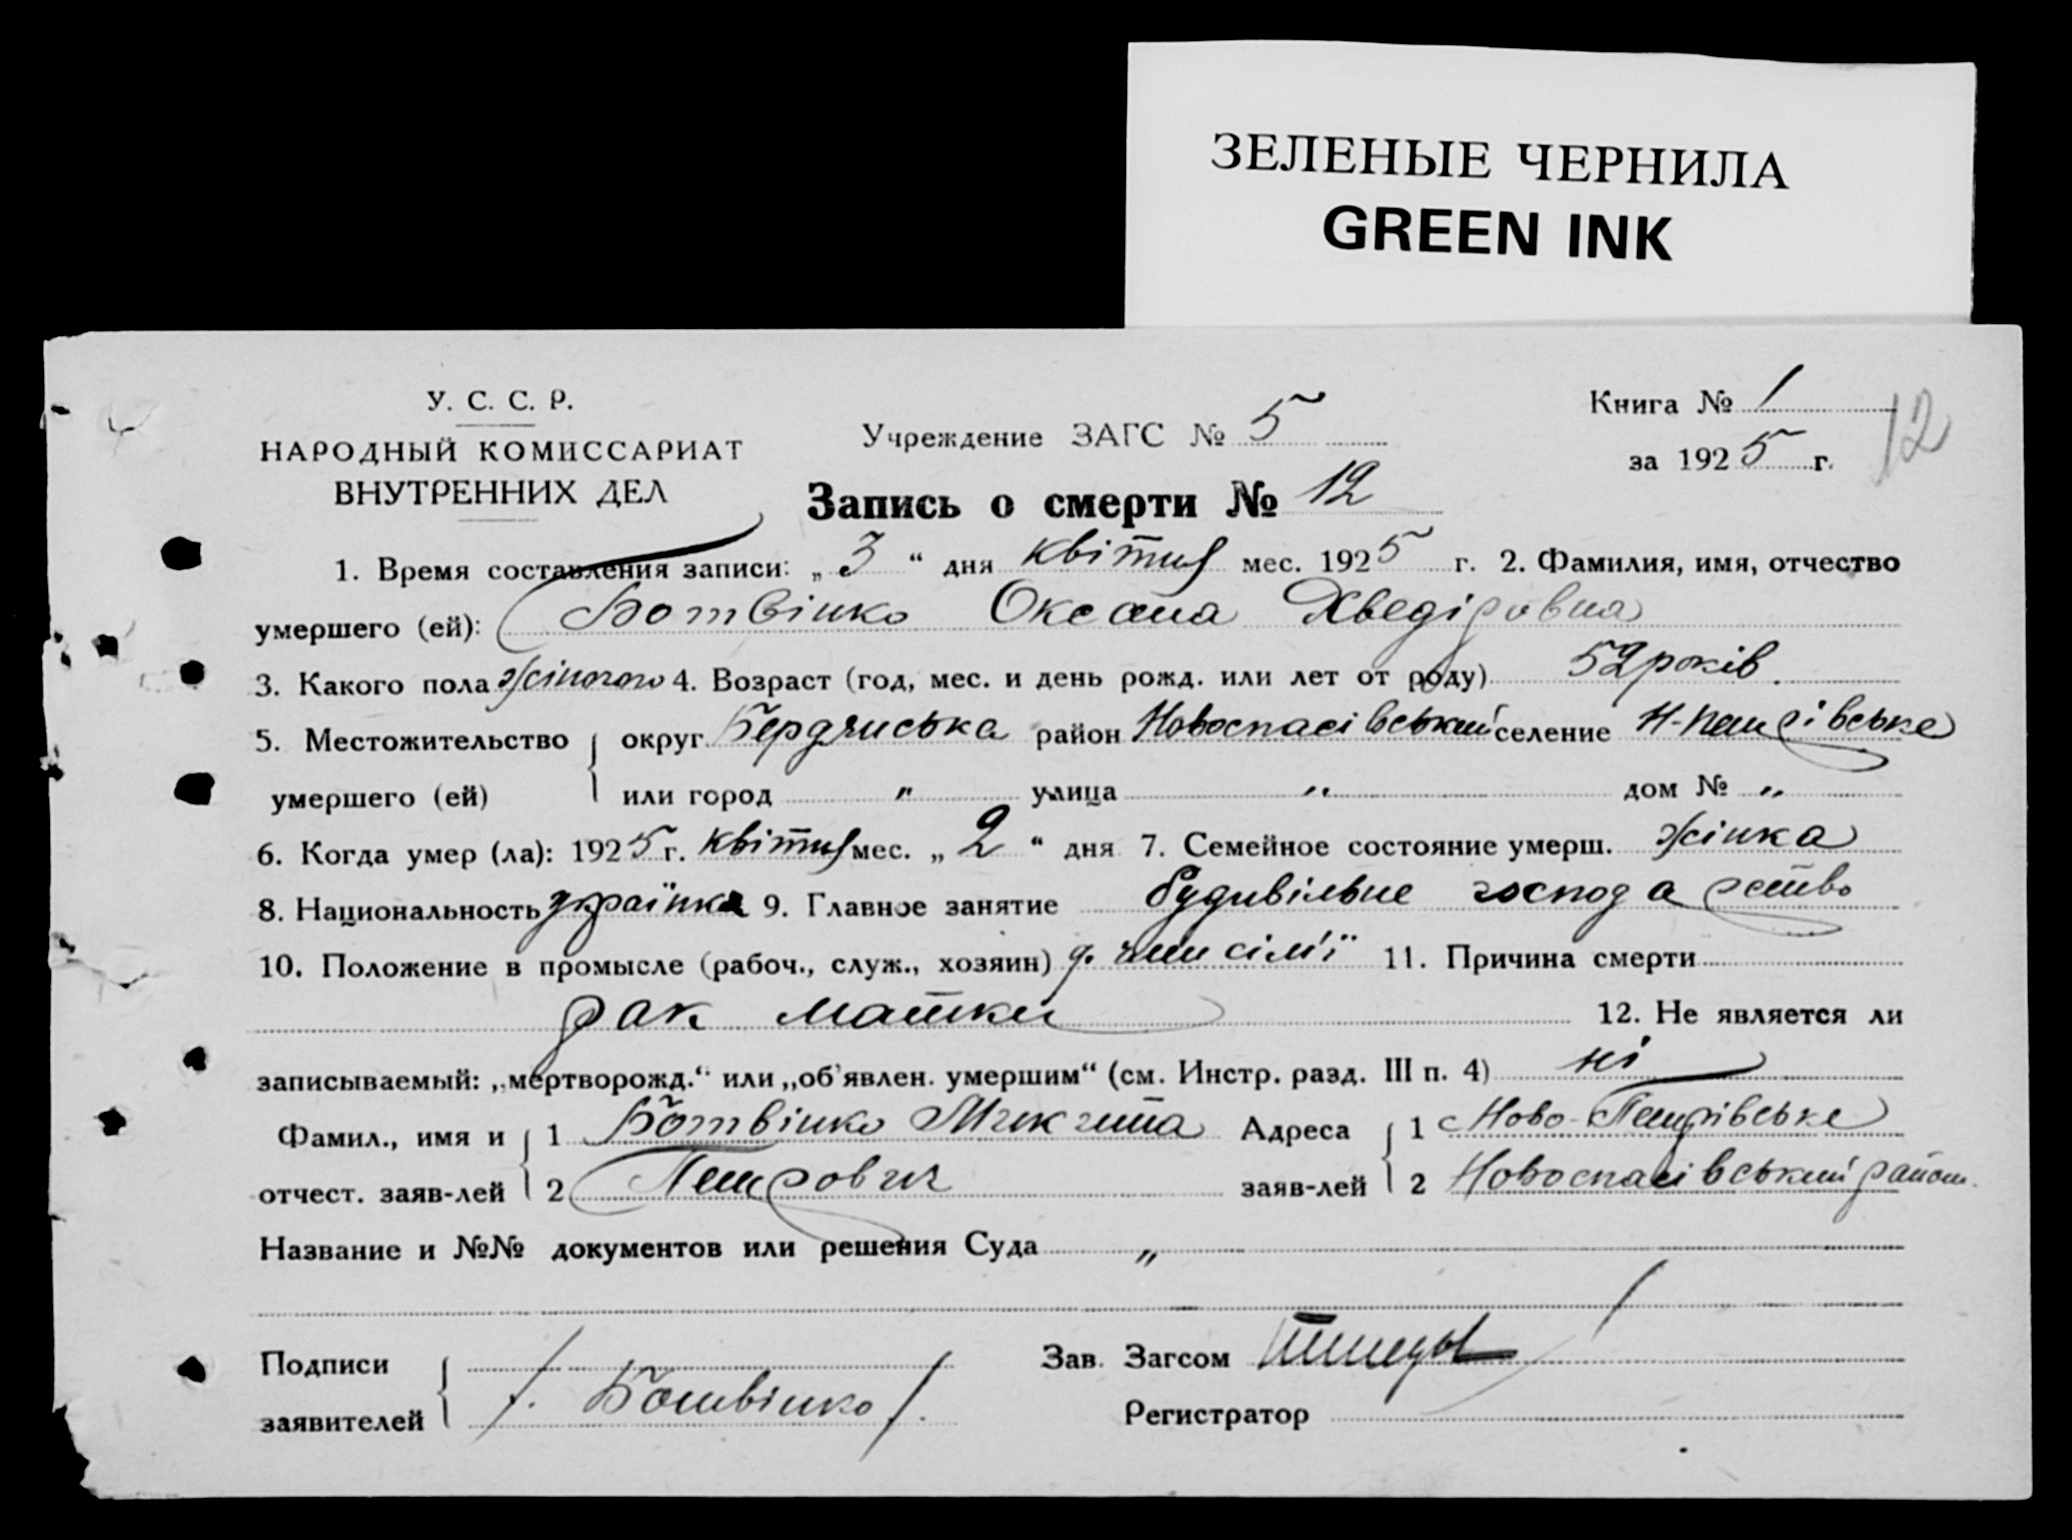 ЗЕЛЕНЫЕ ЧЕРНИЛА
GREEN INK
У. С. С. Р.
НАРОДНЫЙ КОМИССАРИАТ
ВНУТРЕННИХ ДЕЛ
Учреждение ЗАГС № 5
Книга № 1
за 1925 г.
12
Запись о смерти № 12
1. Время составления записи: „3“ дня квітня мес. 1925 г. 2. Фамилия, имя, отчество
умершего (ей): Ботвінко Оксана Хведіровна
3. Какого пола жіночого 4. Возраст (год, мес. и день рожд. или лет от роду) 52 років.
5. Местожительство округ Бердянська район Новоспасівський селение Н-Петрівське
умершего (ей) или город " улица " дом № "
6. Когда умер (ла): 1925 г. квітня мес. „2“ дня 7. Семейное состояние умерш. жінка
8. Национальность українка 9. Главное занятие будивільне господарство
10. Положение в промысле (рабоч., служ., хозяин) член сім'ї 11. Причина смерти
рак матки 12. Не является ли
записываемый: „мертворожд.“ или „об'явлен. умершим“ (см. Инстр. разд. III п. 4) ні
Фамил., имя и 1 Ботвінко Микита Адреса 1 Ново-Петрівське
отчест. заяв-лей 2 Петрович заяв-лей 2 Новоспасівський район.
Название и №№ документов или решения Суда "
Подписи Зав. Загсом
заявителей /. Ботвінко /. Регистратор